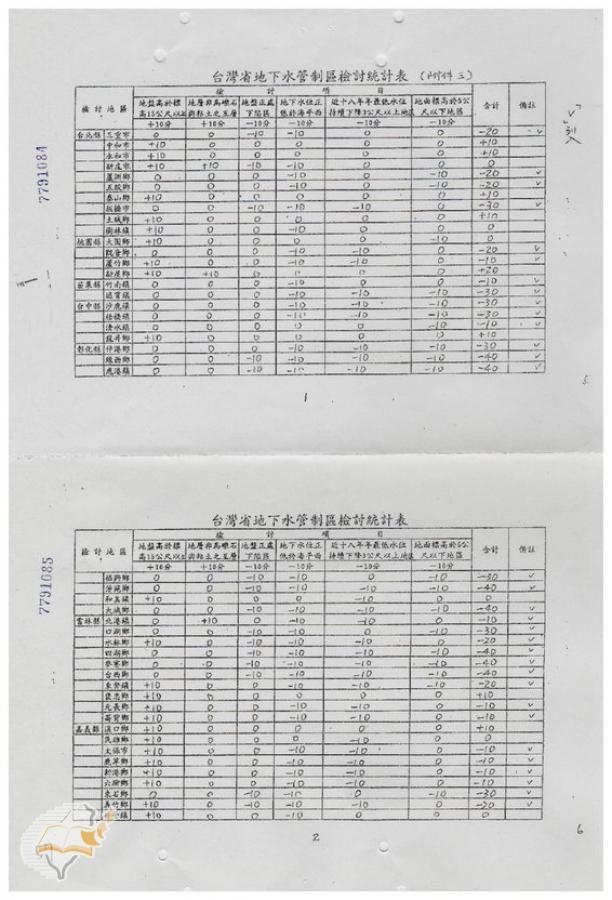 台灣省地下水管制區檢討統計表 (附件三)
檢討地區 檢討項目 合計 備註
地盤高於標高15公尺以上 地層非為礫石與粘土之互層 地盤正處下陷區 地下水位正低於海平面 近十八年年最低水位持續下降3公尺以上地區 地面標高於5公尺以下地區
+10分 +10分 -10分 -10分 -10分 -10分
台北縣 三重市 0 0 -10 -10 0 0 -20 ✓
中和市 +10 0 0 0 0 0 +10
永和市 +10 0 0 0 0 0 +10
新庄市 +10 +10 -10 -10 0 0 0
蘆洲鄉 0 0 0 -10 0 -10 -20 ✓
五股鄉 0 0 0 -10 0 -10 -20 ✓
泰山鄉 +10 0 0 0 0 0 +10
板橋市 0 0 -10 -10 -10 0 -30 ✓
土城鄉 +10 0 0 0 0 0 +10
樹林鎮 +10 0 0 -10 0 0 0
桃園縣 大園鄉 +10 0 0 0 0 -10 0
觀音鄉 0 0 0 -10 -10 0 -20 ✓
蘆竹鄉 +10 0 0 -10 -10 0 -10 ✓
新屋鄉 +10 +10 0 0 0 0 +20
苗栗縣 竹南鎮 0 0 0 -10 0 0 -10 ✓
通霄鎮 0 0 0 -10 -10 -10 -30 ✓
台中縣 沙鹿鎮 0 0 0 -10 -10 -10 -30 ✓
梧棲鎮 0 0 0 -10 -10 -10 -30 ✓
清水鎮 0 0 0 0 0 -10 -10 ✓
龍井鄉 +10 0 0 0 0 0 +10
彰化縣 伸港鄉 0 0 0 -10 -10 -10 -30 ✓
線西鄉 0 0 -10 -10 -10 -10 -40 ✓
鹿港鎮 0 0 -10 -10 -10 -10 -40 ✓
7791084
1
5
台灣省地下水管制區檢討統計表
檢討地區 檢討項目 合計 備註
地盤高於標高15公尺以上 地層非為礫石與粘土之互層 地盤正處下陷區 地下水位正低於海平面 近十八年年最低水位持續下降3公尺以上地區 地面標高於5公尺以下地區
+10分 +10分 -10分 -10分 -10分 -10分
福興鄉 0 0 -10 -10 0 -10 -30 ✓
芳苑鄉 0 0 -10 -10 -10 -10 -40 ✓
和美鎮 +10 0 0 0 -10 0 0
大城鄉 0 0 -10 -10 -10 -10 -40 ✓
雲林縣 北港鎮 0 +10 0 -10 -10 0 -10 ✓
口湖鄉 0 0 -10 -10 0 -10 -30 ✓
水林鄉 +10 0 -10 -10 -10 0 -20 ✓
四湖鄉 0 0 -10 -10 -10 -10 -40 ✓
麥寮鄉 0 0 -10 -10 -10 -10 -40 ✓
台西鄉 0 0 -10 -10 -10 -10 -40 ✓
東勢鄉 +10 0 0 -10 -10 -10 -20 ✓
褒忠鄉 +10 0 0 0 0 0 +10
元長鄉 +10 0 0 -10 -10 0 -10 ✓
+10 0 0 -10 -10 0 -10 ✓
嘉義縣 溪口鄉 +10 0 0 0 0 0 +10
民雄鄉 +10 0 0 0 -10 0 0
太保市 +10 0 0 -10 -10 0 -10 ✓
鹿草鄉 +10 0 0 -10 -10 0 -10 ✓
新港鄉 +10 0 0 -10 -10 0 -10 ✓
六腳鄉 +10 0 0 -10 -10 0 -10 ✓
東石鄉 0 0 -10 -10 0 -10 -30 ✓
義竹鄉 +10 0 -10 -10 -10 0 -20 ✓
+10 0 0 -10 0 0 0
7791085
2
6